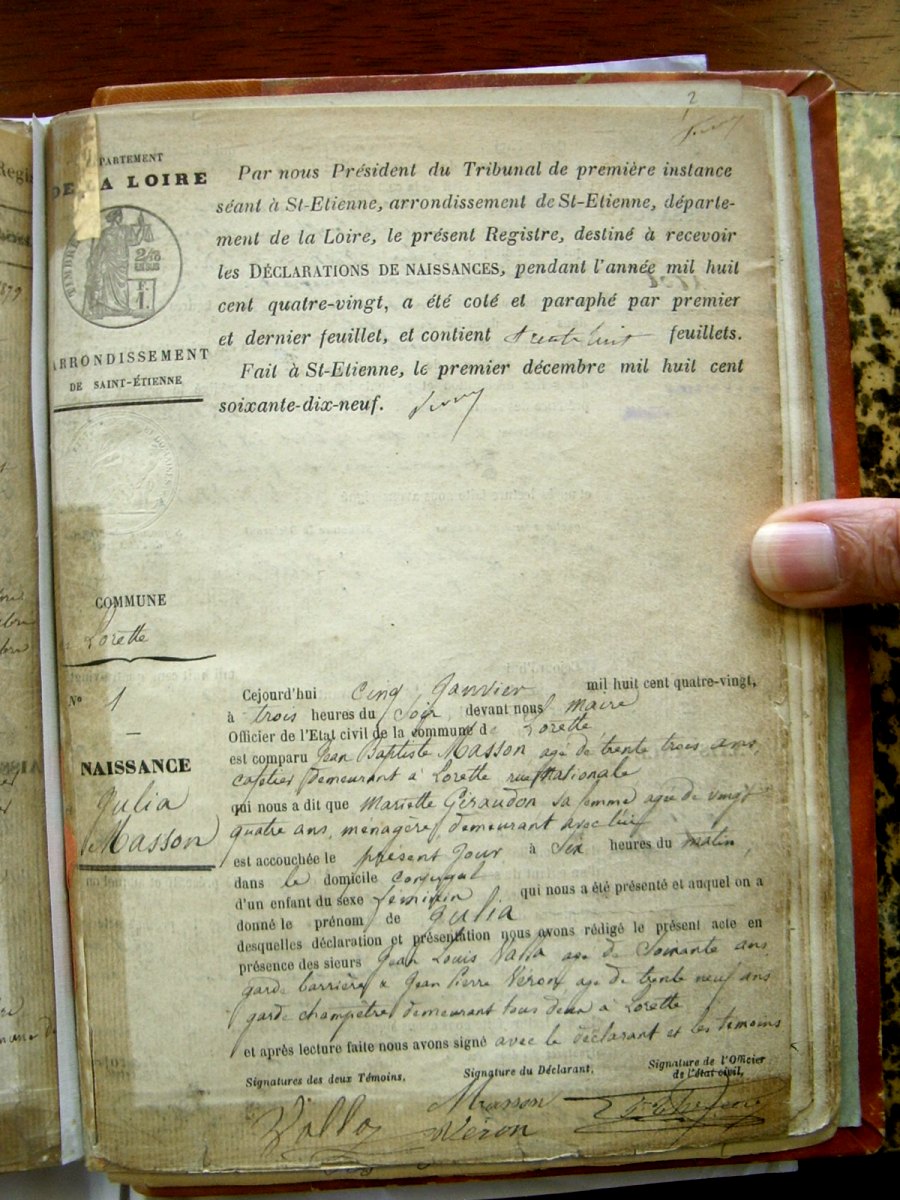 2
PARTEMENT
DE LA LOIRE
TIMBRE
2/10
EN SUS
F.
1.
Par nous Président du Tribunal de première instance
séant à St-Etienne, arrondissement de St-Etienne, départe-
ment de la Loire, le présent Registre, destiné à recevoir
les DÉCLARATIONS DE NAISSANCES, pendant l'année mil huit
cent quatre-vingt, a été coté et paraphé par premier
et dernier feuillet, et contient trente huit feuillets.
Fait à St-Etienne, le premier décembre mil huit cent
soixante-dix-neuf.
ARRONDISSEMENT
DE SAINT-ÉTIENNE
1879
COMMUNE
Lorette
N° 1
NAISSANCE
Julia
Masson
Cejourd'hui cinq Janvier mil huit cent quatre-vingt,
à trois heures du Soir, devant nous Maire
Officier de l'Etat civil de la commune de Lorette
est comparu Jean Baptiste Masson agé de trente trois ans,
cafetier demeurant à Lorette rue Nationale
qui nous a dit que Mariette Giraudon sa femme agée de vingt
quatre ans, ménagère, demeurant avec lui
est accouchée le présent Jour à Six heures du matin,
dans le domicile conjugal
d'un enfant du sexe féminin qui nous a été présenté et auquel on a
donné le prénom de Julia
desquelles déclaration et présentation nous avons rédigé le présent acte en
présence des sieurs Jean Louis Valla agé de Soixante ans
garde barrière & Jean Pierre Véron agé de trente neuf ans
garde champêtre demeurant tous deux à Lorette
et après lecture faite nous avons signé avec le déclarant et les témoins
Signatures des deux Témoins. Signature du Déclarant, Signature de l'Officier
de l'état civil,
Valla Masson
Véron